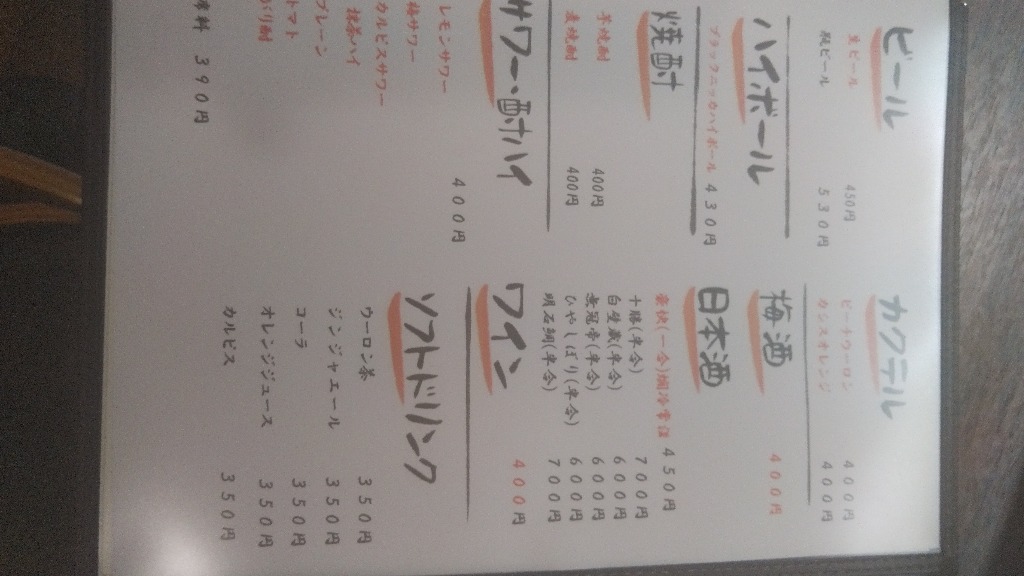 ビール
生ビール 450円
瓶ビール 530円
ハイボール
ブラックニッカハイボール 430円
焼酎
芋焼酎 400円
麦焼酎 400円
サワー・酎ハイ
400円
レモンサワー
梅サワー
カルピスサワー
抹茶ハイ
プレーン
トマト
390円
カクテル
ピーチウーロン 400円
カシスオレンジ 400円
梅酒
400円
日本酒
豪快(一合)燗冷常温 450円
十勝(半合) 700円
白生蔵(半合) 600円
無冠帝(半合) 600円
ひやしぼり(半合) 600円
明石鯛(半合) 700円
ワイン
400円
ソフトドリンク
ウーロン茶 350円
ジンジャエール 350円
コーラ 350円
オレンジジュース 350円
カルピス 350円